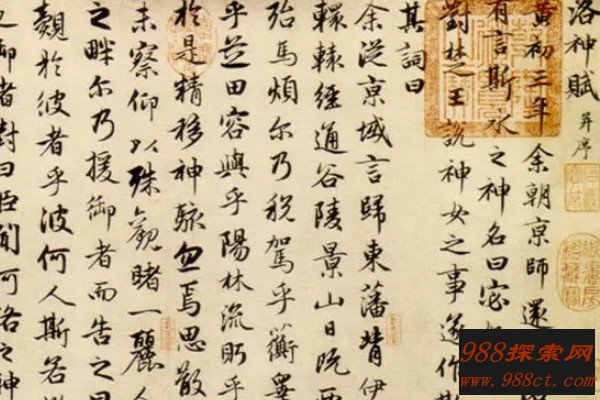 洛神賦 并序
黄初三年余朝京師還
有言斯水之神名曰宓
對楚王說神女之事遂作斯
其詞曰
余從京域言歸東藩背伊
轘轅經通谷陵景山日既西
殆馬煩尔乃税駕乎蘅皋
乎芝田容與乎陽林流眄乎
於是精移神駭忽焉思散
未察仰以殊觀睹一麗人
之畔尔乃援御者而告之曰
覿於彼者乎彼何人斯若
御者對曰臣聞河洛之神
988探索网
www.988ct.com